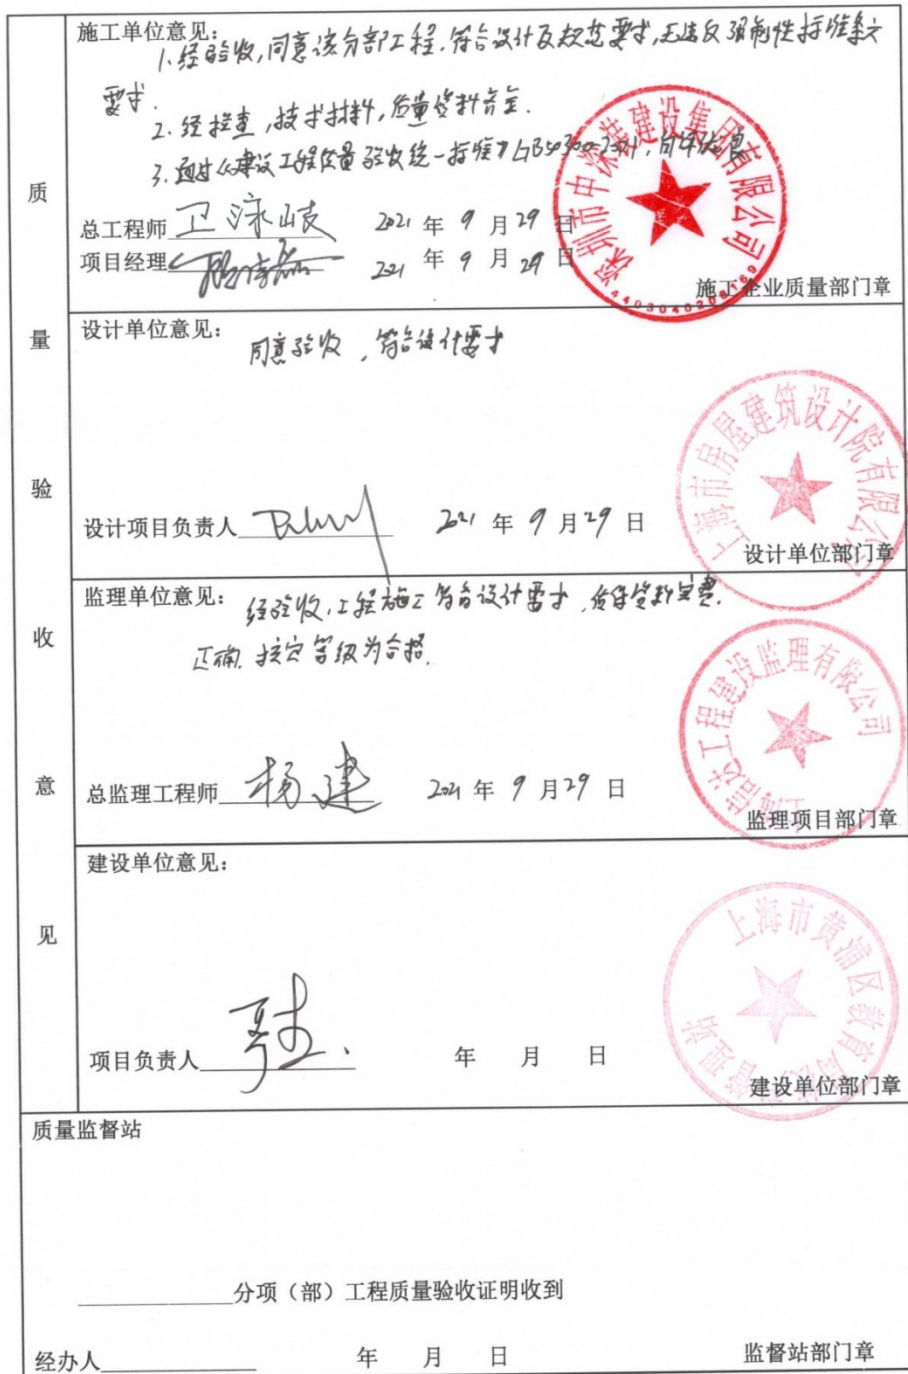 施工单位意见:
1.经验收,同意该分部工程,符合设计及规范要求,无违反强制性标准条文
要求.
2.经检查,技术材料,质量资料齐全.
3.通过《建设工程质量验收统一标准》GB50300-2001,自评优良
总工程师 卫泳岐 2021 年 9 月 29 日
项目经理 2021 年 9 月 29 日
深圳市中深建设集团有限公司
施工企业质量部门章
质量验收意见
设计单位意见:
同意验收,符合设计要求
设计项目负责人 2021 年 9 月 29 日
上海市房屋建筑设计院有限公司
设计单位部门章
监理单位意见:
经验收,工程施工符合设计要求,质保资料完整.
正确.核定等级为合格.
总监理工程师 杨建 2021 年 9 月 29 日
信达工程建设监理有限公司
监理项目部门章
建设单位意见:
项目负责人 年 月 日
上海市黄浦区教育局 管理站
建设单位部门章
质量监督站
分项(部)工程质量验收证明收到
经办人 年 月 日
监督站部门章